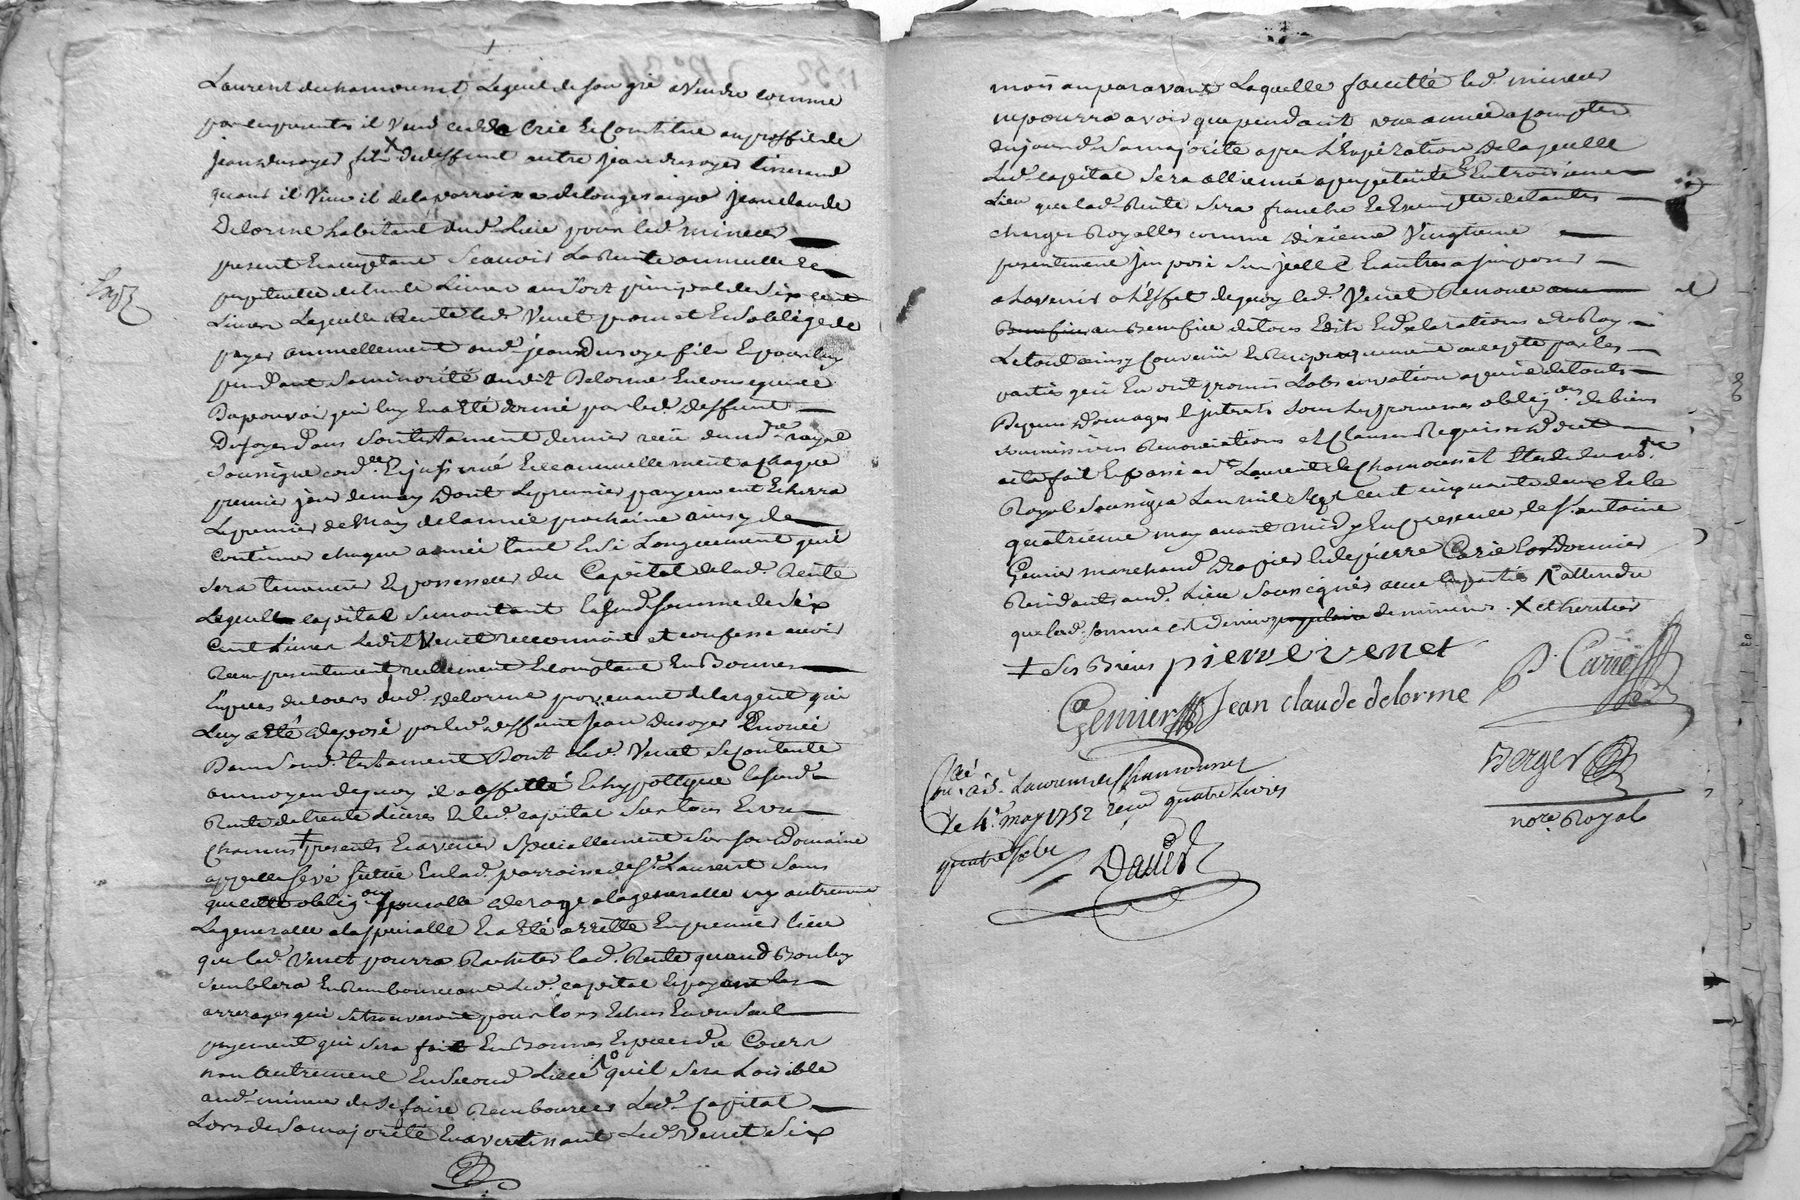 Laurent de chamousset Lequel de son gré a vendu comme
par ces presentes il vend cedde crée et Constitue au proffit de
jean dusoyer fils X du deffunt autre jean dusoyer tisserand
quand il vivoit de la parroisse de longessaigne jean claude
Delorme habitant dud. Lieu pour led. mineur
present et acceptant Scavoir La Rente annuelle et
perpetuelle de trente Livres au sort principal de Six cent
Livres Laquelle Rente led. Venet promet et s'oblige de
payer annuellement aud. jean Dusoye fils et pour luy
pendant sa minorité audit Delorme en consequence
Du pouvoir qui luy en a été donné par led. deffunt
Dusoyer dans son testament dernier reçu du no.re royal
soussigné et ce annuellement a chaque
premier jour de may Dont Le premier payement Echerra
Le premier de May de l'année prochaine ainsy de
Continuer chaque année tant et si Longuement qu'il
sera tenancier et possesseur du Capital de lad. Rente
Lequel capital se montant lad. somme de Six
Cent Livres Ledit Venet reconnoit et confesse avoir
Reçu presentement reellement et comptant en Bonnes
Especes du cours dud. Delorme provenant de l'argent qui
Luy a été deposé par led. deffunt Jean Dusoyer Enoncé
Dans sond. testament Dont led. Venet se contente
au moyen de quoy il a affecté et hypotteque lad.
Rente de trente Livres et led. capital sur tous et un
Chacuns ‡ presents et a venir specialement sur son Domaine
appellé situé en lad. parroisse de St. Laurent sans
que cette oblig.on specialle deroge a la generalle ny autrement
La generalle a la specialle et a été arretté en premier lieu
que led. Venet pourra Racheter lad. Rente quand Bon luy
semblera en Remboursant led. capital et payant les
arrerages qui se trouveront pour lors Echus en un seul
payement qui sera fait en Bonnes Especes du Cours
non autrement en Second Lieu qu'il sera Loisible
aud. mineur de se faire Rembourcer led. Capital
Lors de sa majorité en avertissant led. Venet Six
mois auparavant Laquelle faculté led. mineur
ne pourra avoir que pendant une année a compter
du jour de sa majorité apres l'Expiration de laquelle
led. capital sera allienné a perpetuité et en troisieme
Lieu que lad. Rente sera franche et Exempte de toutes
charges Royalles comme dixieme vingtieme
presentement imposé sur jcelle et autres a jmposer
a l'avenir a l'Effet de quoy led. Venet Renonce
Benefice au Benefice de tous Edits et declarations du Roy
Le tout ainsy convenu et reciproquement accepté par les
parties qui en ont promis l'observation a peine de tous
Depens Domages et jnterets sous les promesses oblig.ons de biens
soumissions Renonciations et Clauses Requises
fait et passé aud. St. Laurent de Chamousset Etude du no.re
Royal Soussigné L'an mil Sept cent cinquante deux et le
quatrieme may avant midy En presence de Sr. antoine
Genier marchand drapier et de pierre Carié Cordonnier
Residants aud. Lieu soussignés avec les parties attendu
que lad. somme est deniers pupilaire de mineurs. X et heritier
‡ ses Biens pierre venet
P. Carié
Genier Jean claude delorme
Berger
no.re Royal
Con.llé a St. Laurent de Chamousset
le 4e. may 1752 reçu quatre livres
quatre sols
David